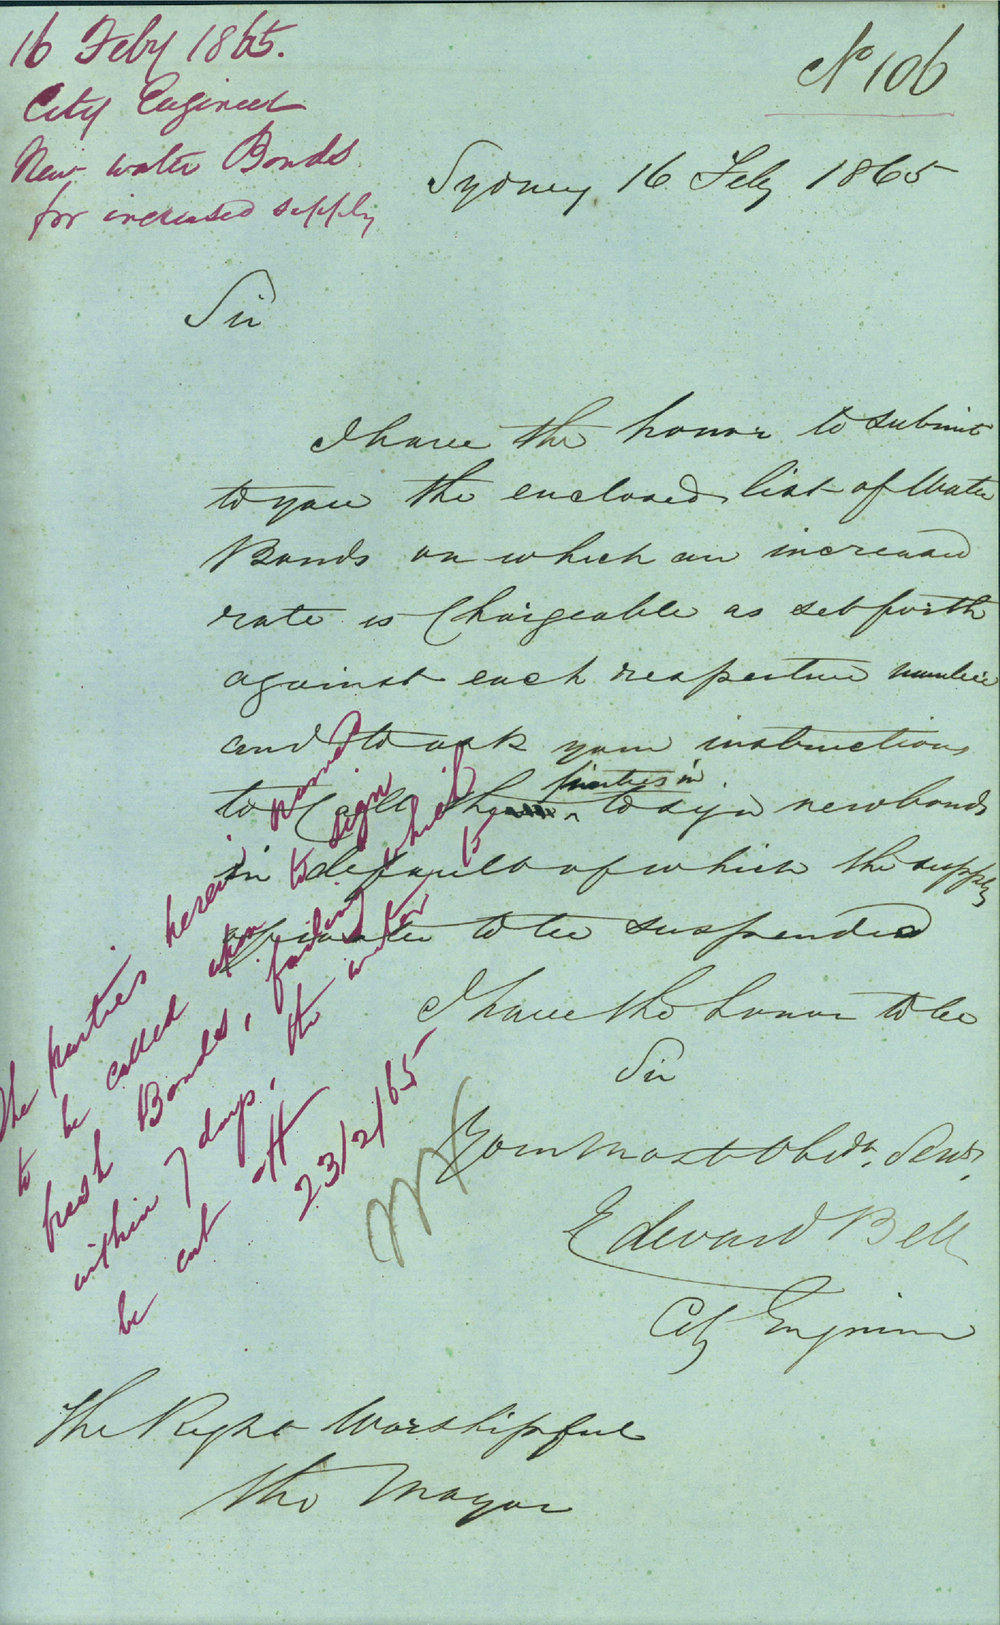 16 Feby 1865.
City Engineer
New water Bonds
for increased supply
No 106
Sydney 16 Feby 1865
Sir
I have the honor to submit
to you the enclosed list of Water
Bonds on which an increased
rate is Chargeable as set forth
against each respective number
and to ask your instructions
to Call the parties in to sign new bonds
in default of which the supply
of water to be suspended
I have the honor to be
Sir
Your Most Obedt. Servt.
Edward Bell
City Engineer
The Right Worshipful
The Mayor
The parties herein named
to be called upon to sign
fresh Bonds, failing which
within 7 days, the water to
be cut off
23/2/65